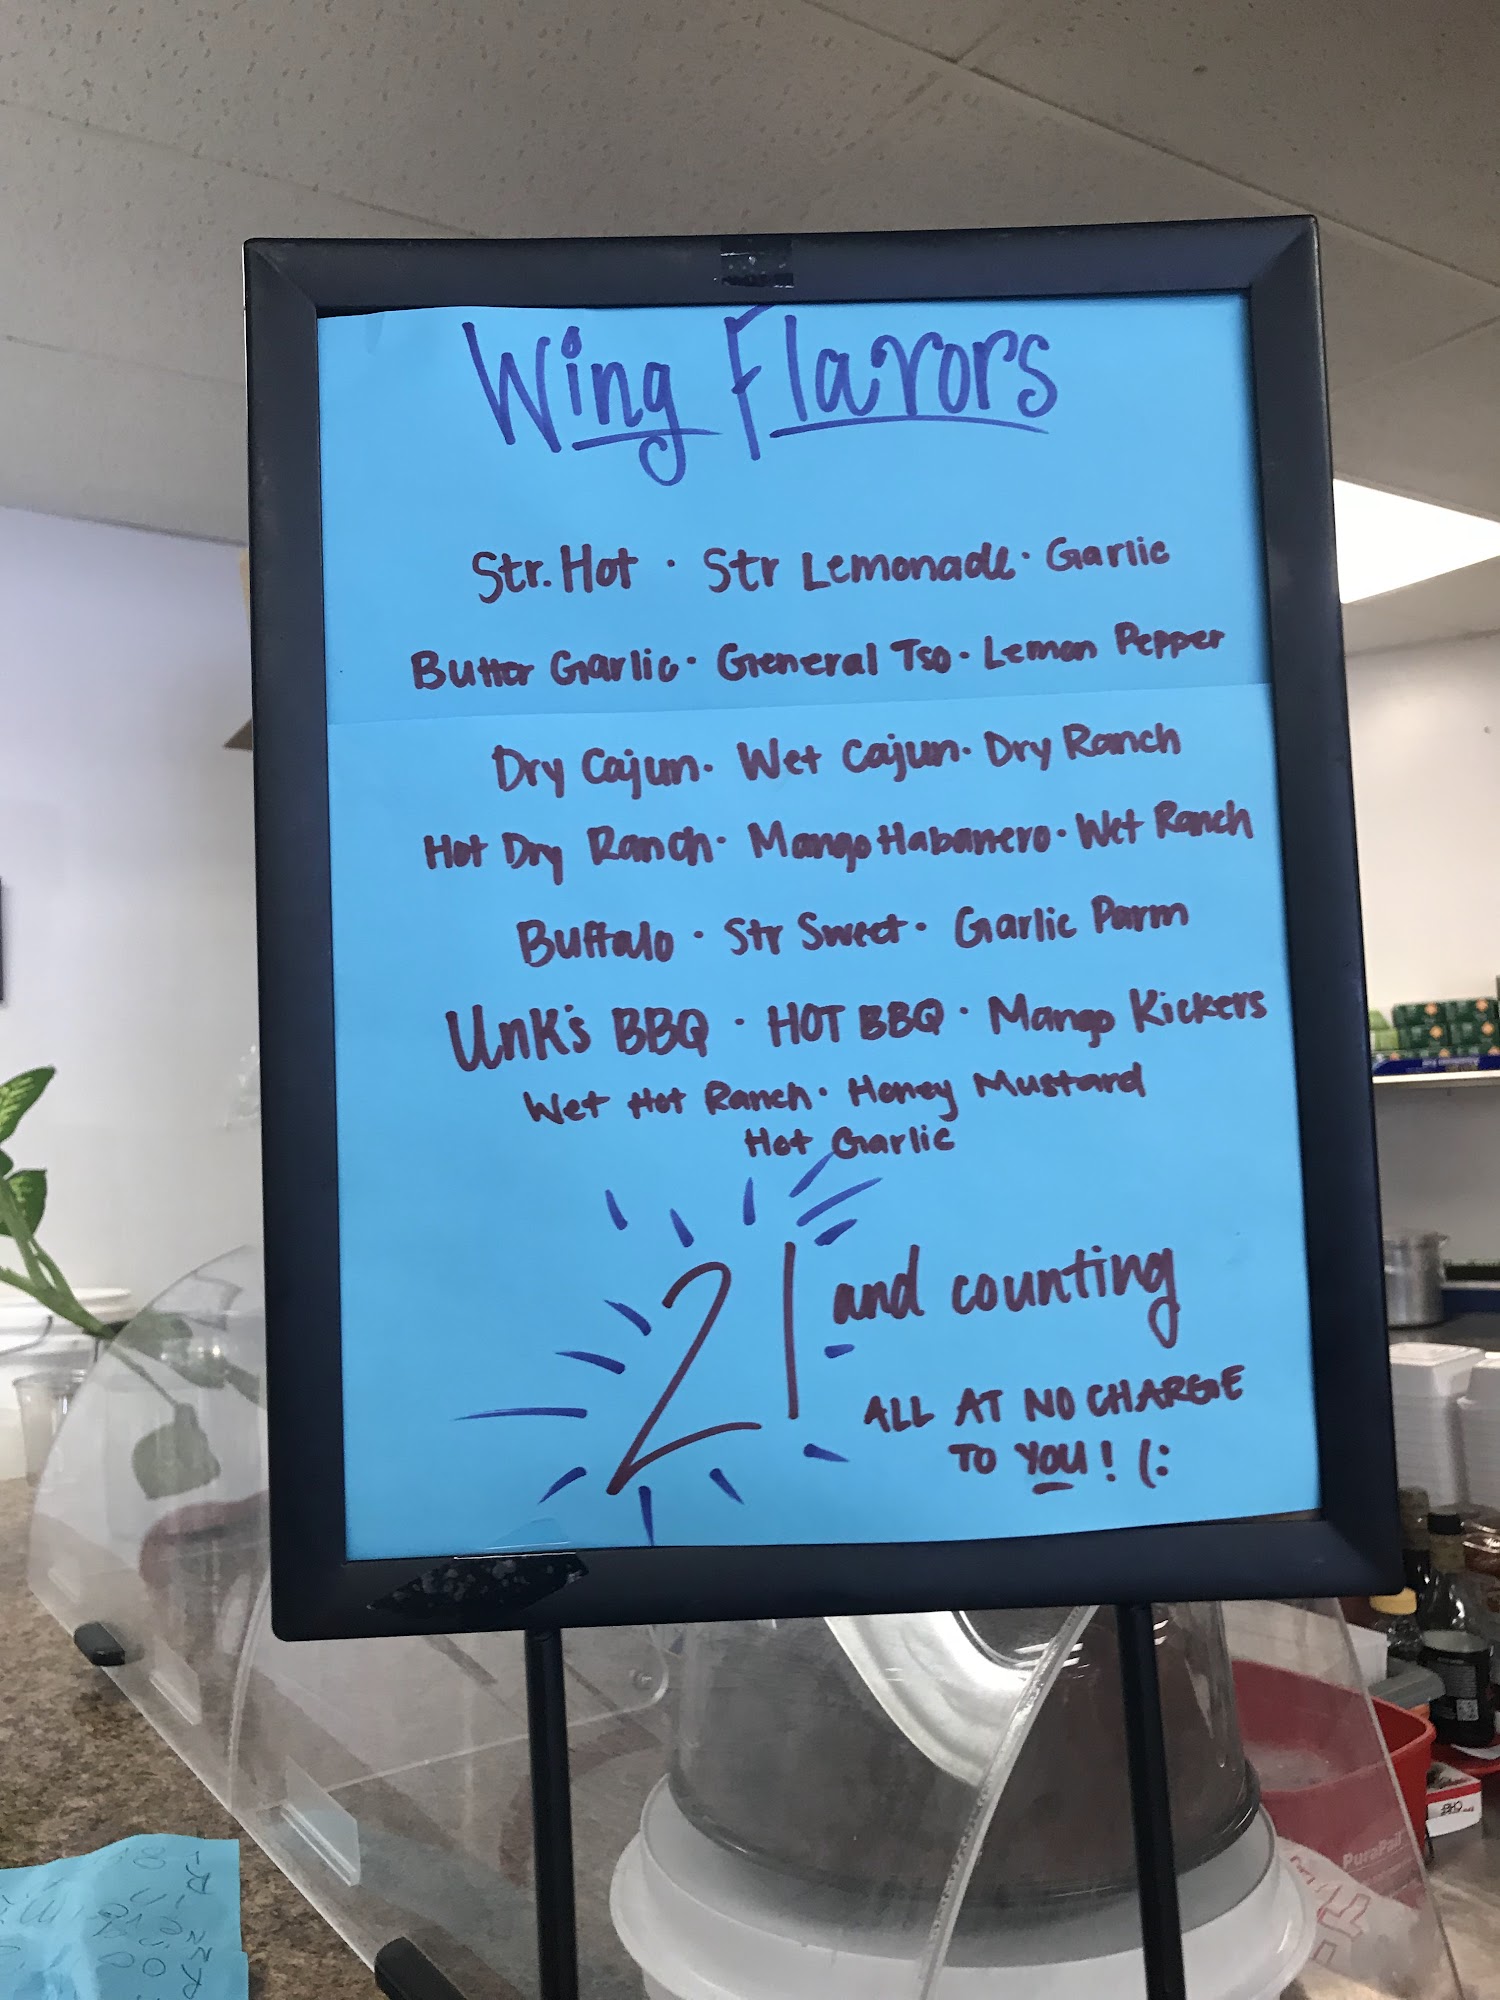 Wing Flavors
Str. Hot · Str Lemonade · Garlic
Butter Garlic · General Tso · Lemon Pepper
Dry Cajun · Wet Cajun · Dry Ranch
Hot Dry Ranch · Mango Habanero · Wet Ranch
Buffalo · Str Sweet · Garlic Parm
Unk's BBQ · HOT BBQ · Mango Kickers
Wet Hot Ranch · Honey Mustard
Hot Garlic
21 and counting
ALL AT NO CHARGE
TO YOU! (:
PuraPail